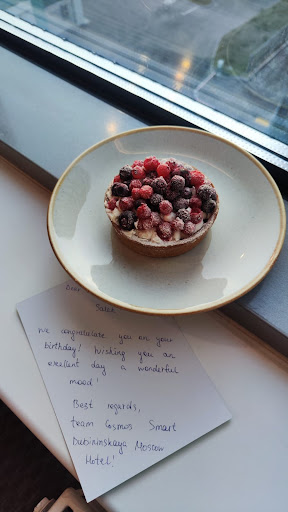 Dear
We congratulate you on your
birthday! Wishing you an
exellent day & wonderful
mood!
Best regards,
team Cosmos Smart
Dubininskaya Moscow
Hotel!